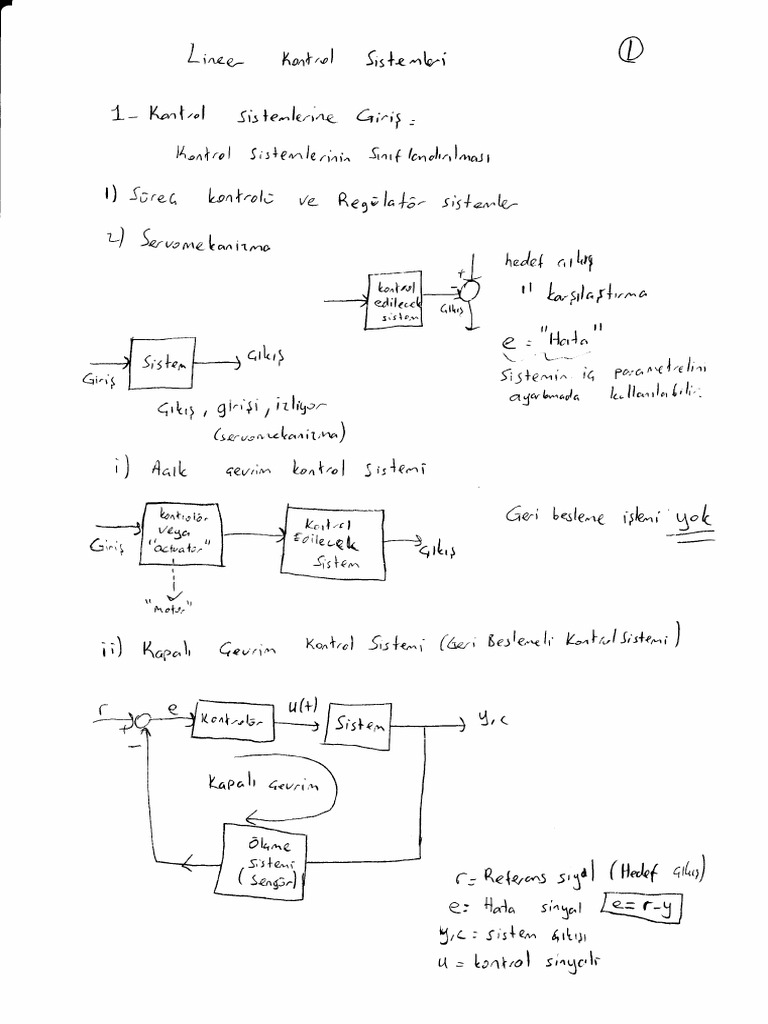 Lineer Kontrol Sistemleri
①
1- Kontrol Sistemlerine Giriş:
Kontrol Sistemlerinin Sınıflandırılması
1) Süreç kontrolü ve Regülatör sistemler
2) Servomekanizma
kontrol
edilecek
sistem
+
-
Çıkış
hedef çıkış
" karşılaştırma
e = "Hata"
Sistemin iç parametrelini
ayarlamada kullanılabilir.
Giriş
Sistem
Çıkış
Çıkış, girişi, izliyor
(servomekanizma)
i) Açık çevrim kontrol sistemi
Giriş
kontrolör
veya
"actuator"
"motor"
Kontrol
Edilecek
Sistem
Çıkış
Geri besleme işlemi yok
ii) Kapalı Çevrim Kontrol Sistemi (Geri Beslemeli Kontrol Sistemi)
r
+
-
e
Kontrolör
u(t)
Sistem
y,c
Kapalı Çevrim
Ölçme
sistemi
(Sensör)
r = Referans siyal (Hedef çıkış)
e = Hata sinyal e = r-y
y,c = sistem çıkışı
u = kontrol sinyali